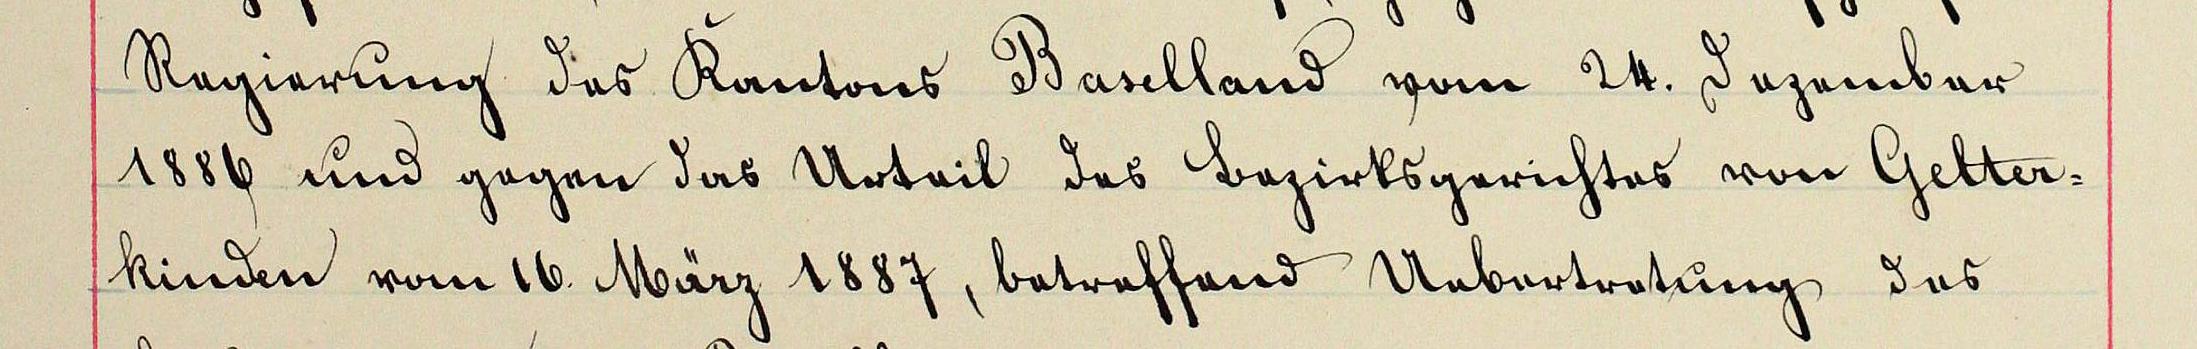 Regierung des Kantons Baselland vom 24. Dezember
1886 und gegen das Urteil des Bezirksgerichtes von Gelter-
kinden vom 16. März 1887, betreffend Uebertretung des